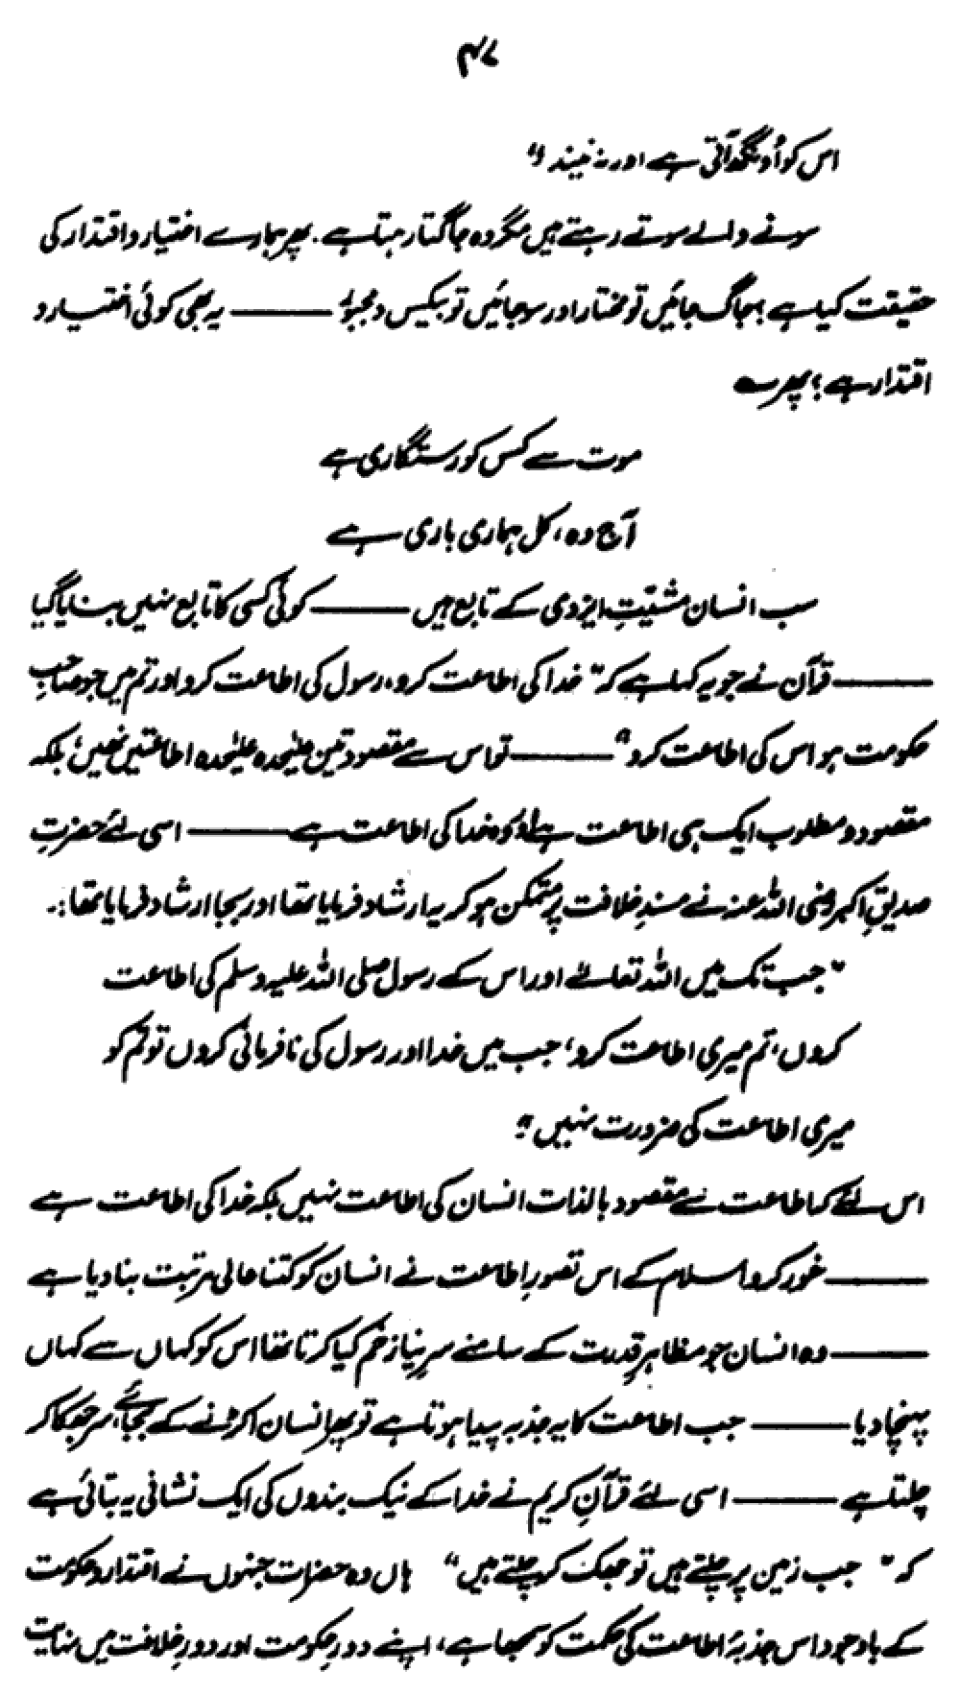 ۴۷
اس کو اُونگھ آتی ہے اور نہ نیند "
سونے والے سوتے رہتے ہیں مگر وہ جاگتا رہتا ہے۔ پھر ہمارے اختیار و اقتدار کی
حقیقت کیا ہے ؛ جاگ جائیں تو مختار اور سو جائیں تو بیکس و مجبور ——— یہ بھی کوئی اختیار و
اقتدار ہے ؛ پھر ؎
موت سے کس کو رستگاری ہے
آج وہ، کل ہماری باری ہے
سب انسان مشیّتِ ایزدی کے تابع ہیں ——— کوئی کسی کا تابع نہیں بنایا گیا
——— قرآن نے جو یہ کہا ہے کہ " خدا کی اطاعت کرو، رسول کی اطاعت کرو اور تم میں جو صاحبِ
حکومت ہو اس کی اطاعت کرو " ——— تو اس سے مقصود تین علیٰحدہ علیٰحدہ اطاعتیں نہیں؛ بلکہ
مقصود و مطلوب ایک ہی اطاعت ہے اور وہ خدا کی اطاعت ہے ——— اسی لئے حضرتِ
صدیقِ اکبر رضی اللہ عنہ نے مسندِ خلافت پر متمکن ہو کر یہ ارشاد فرمایا تھا اور بجا ارشاد فرمایا تھا :۔
" جب تک میں اللہ تعالےٰ اور اس کے رسول صلی اللہ علیہ وسلم کی اطاعت
کروں، تم میری اطاعت کرو؛ جب میں خدا اور رسول کی نافرمانی کروں تو تم کو
میری اطاعت کی ضرورت نہیں "؛
اس لئے کہ اطاعت سے مقصود بالذات انسان کی اطاعت نہیں بلکہ خدا کی اطاعت ہے
——— غور کرو اسلام کے اس تصورِ اطاعت نے انسان کو کتنا عالی مرتبت بنا دیا ہے
——— وہ انسان جو مظاہرِ قدرت کے سامنے سرِ نیاز خم کیا کرتا تھا اس کو کہاں سے کہاں
پہنچا دیا ——— جب اطاعت کا یہ جذبہ پیدا ہوتا ہے تو پھر انسان اکڑنے کے بجائے، سر جھکا کر
چلتا ہے ——— اسی لئے قرآنِ کریم نے خدا کے نیک بندوں کی ایک نشانی یہ بتائی ہے
کہ " جب زمین پر چلتے ہیں تو جھک کر چلتے ہیں " ہاں وہ حضرات جنہوں نے اقتدار و حکومت
کے باوجود اس جذبۂ اطاعت کی حکمت کو سمجھا ہے، اپنے دورِ حکومت اور دورِ خلافت میں نہایت